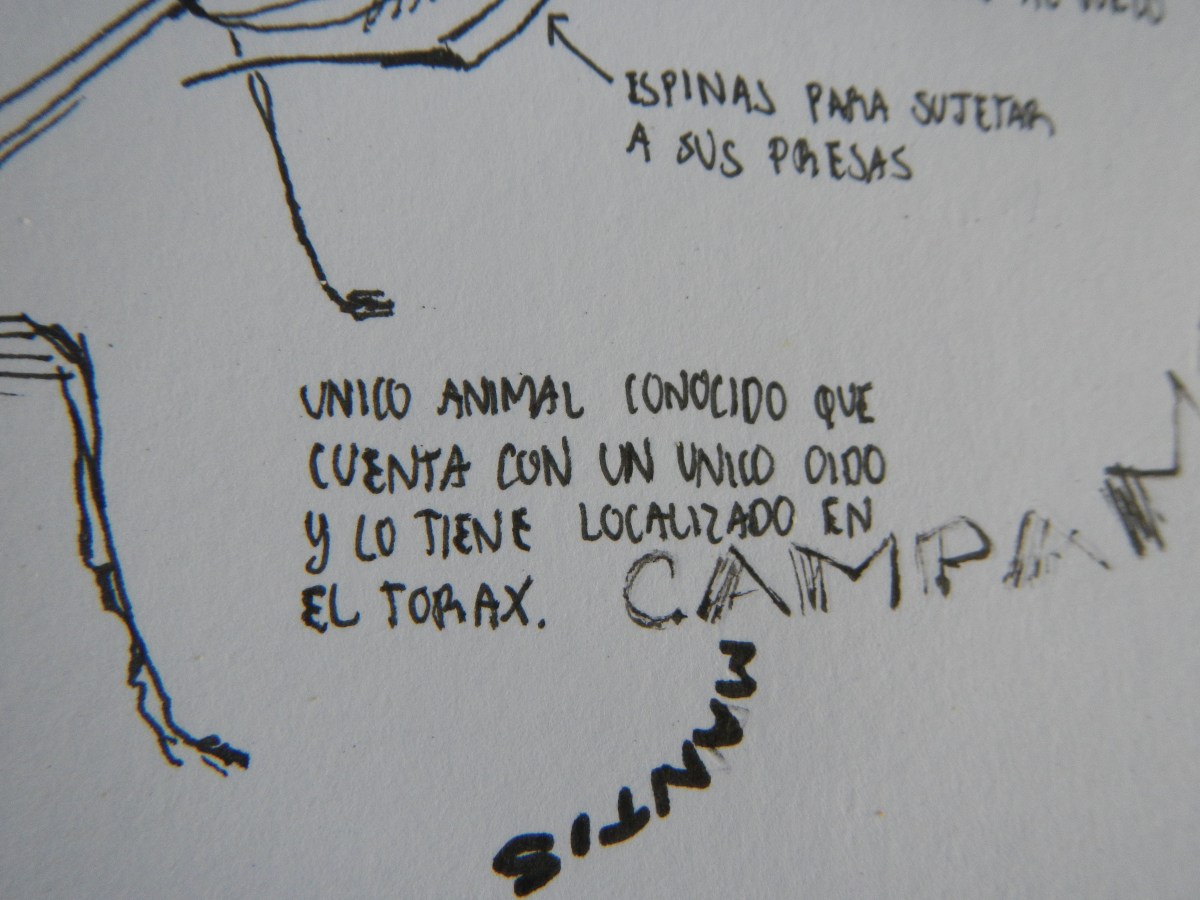 ESPINAS PARA SUJETAR
A SUS PRESAS
UNICO ANIMAL CONOCIDO QUE
CUENTA CON UN UNICO OIDO
Y LO TIENE LOCALIZADO EN
EL TORAX.
CAMPAN
MANTIS